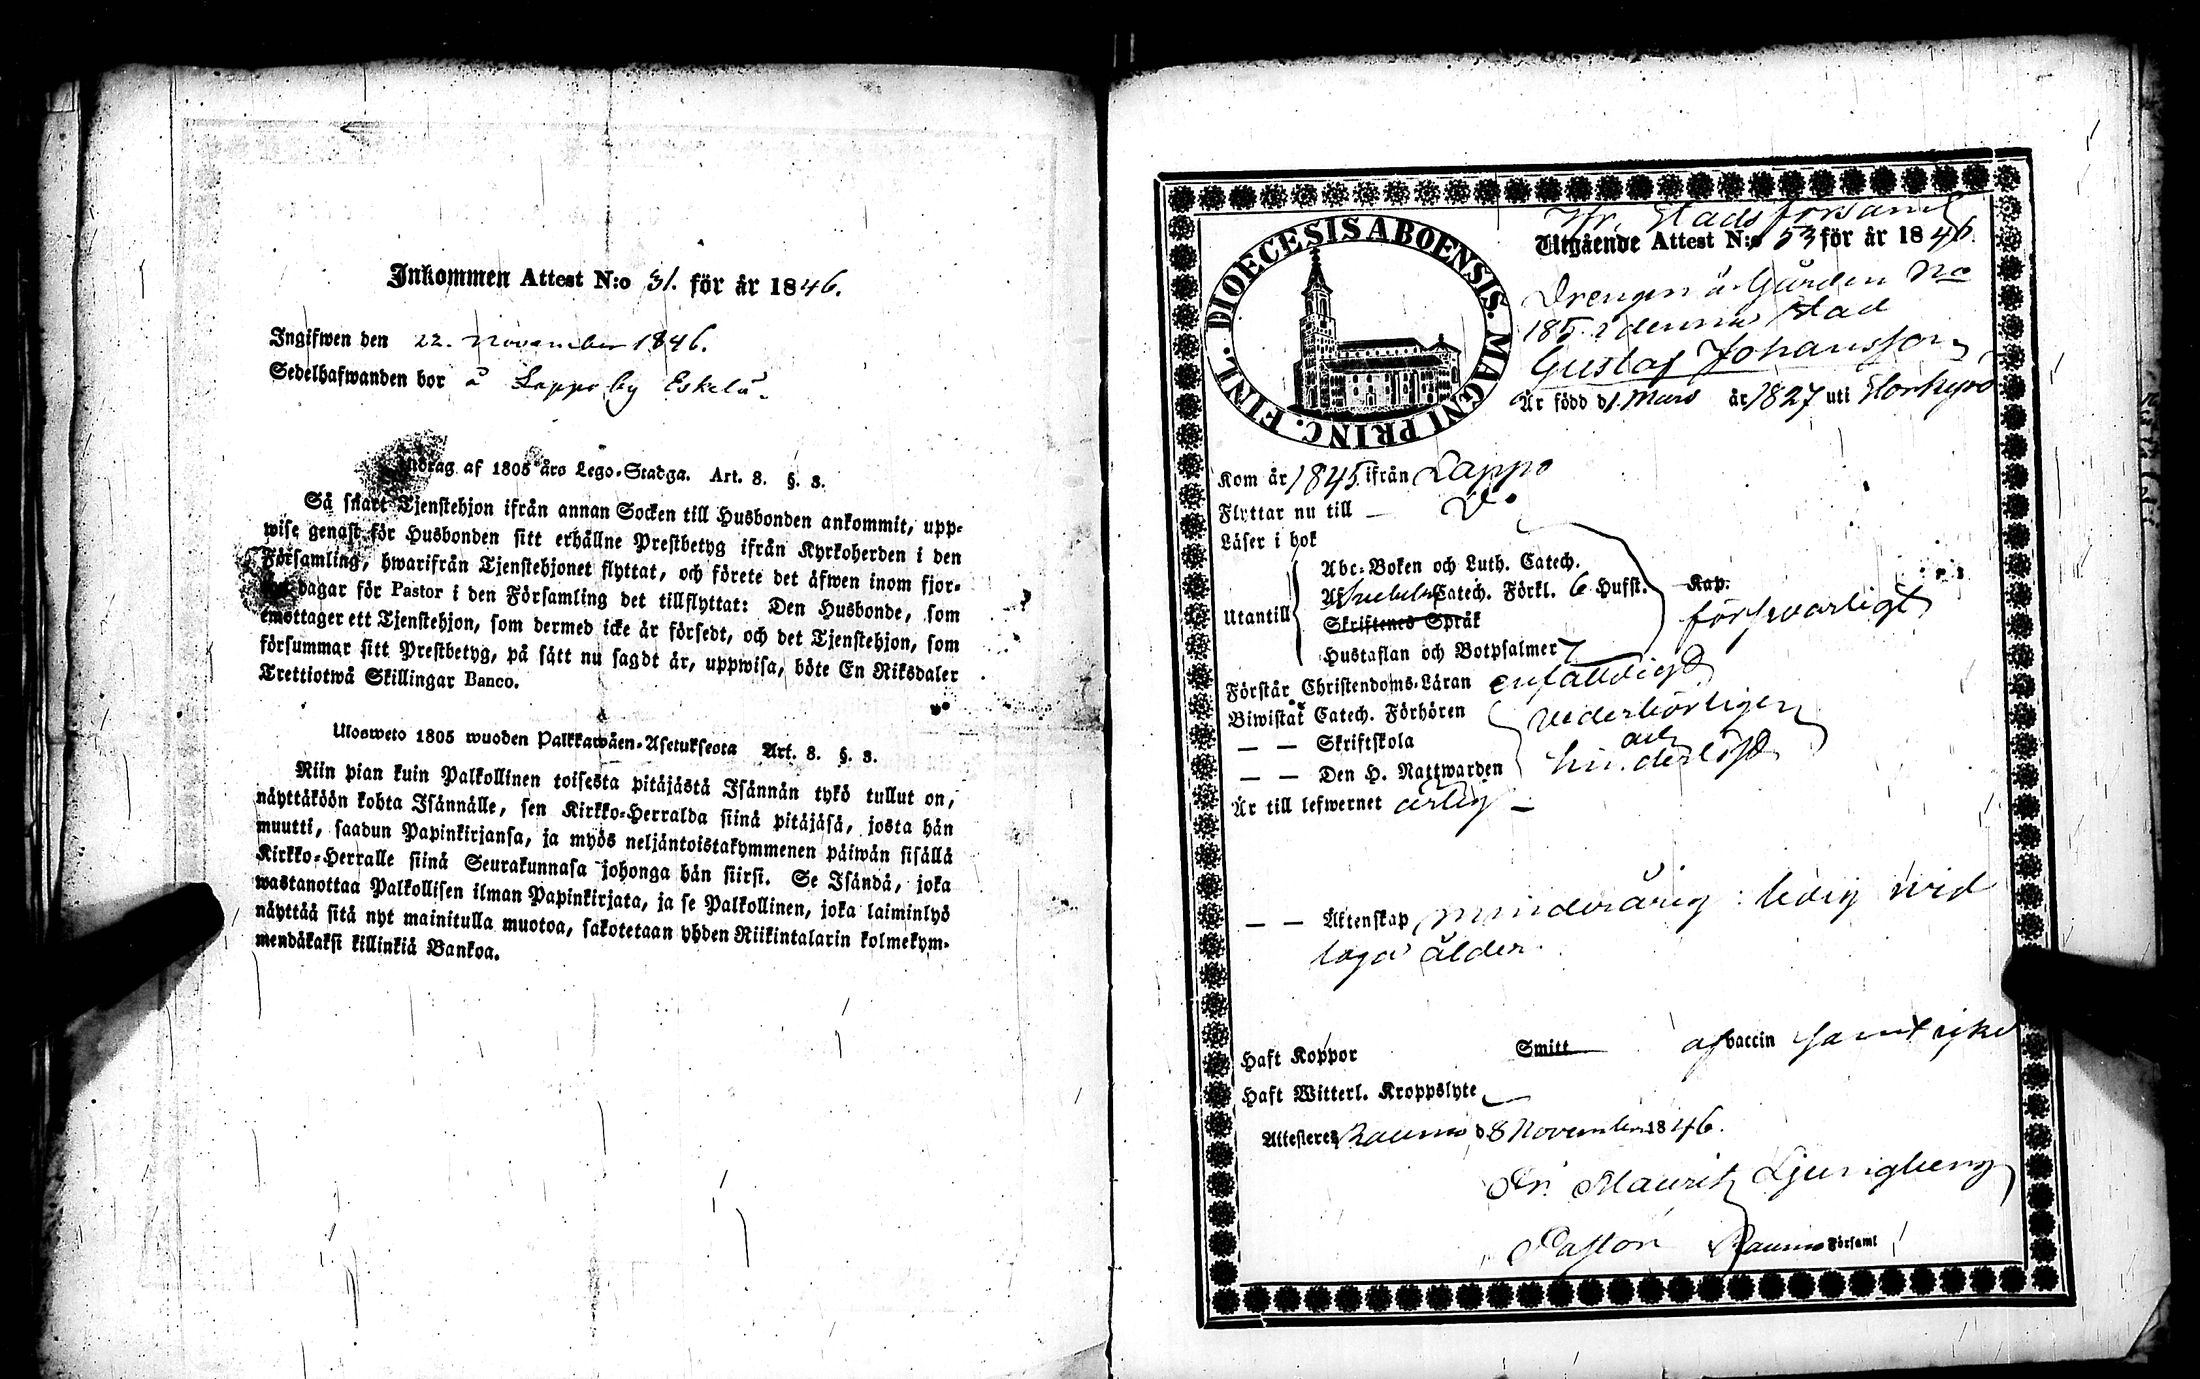 Inkommen Attest N:o 31. för år 1846.
Ingifwen den 22. November 1846.
Sedelhafwanden bor å Lappo by Eskelä.
Utdrag af 1805 års Lego-Stadga. Art. 8. §. 3.
Så snart Tjenstehjon ifrån annan Socken till Husbonden ankommit, upp-
wise genast för Husbonden sitt erhållne Prestbetyg ifrån Kyrkoherden i den
Församling, hwarifrån Tjenstehjonet flyttat, och förete det äfwen inom fjor-
dagar för Pastor i den Församling det tillflyttat: Den Husbonde, som
emottager ett Tjenstehjon, som dermed icke är försedt, och det Tjenstehjon, som
försummar sitt Prestbetyg, på sätt nu sagdt är, uppwisa, böte En Riksdaler
Trettiotwå Skillingar Banco.
Ulosweto 1805 wuoden Palkkawäen-Asetuksesta Art. 8. §. 3.
Niin pian kuin Palkollinen toisesta pitäjästä Isännän tykö tullut on,
näyttäköön kohta Isännälle, sen Kirkko-Herralda siinä pitäjäsä, josta hän
muutti, saadun Papinkirjansa, ja myös neljäntoistakymmenen päiwän sisällä
Kirkko-Herralle siinä Seurakunnasa johonga hän siirsi. Se Isändä, joka
wastanottaa Palkollisen ilman Papinkirjata, ja se Palkollinen, joka laiminlyö
näyttää sitä nyt mainitulla muotoa, sakotetaan yhden Riikintalarin kolmekym-
mendäkaksi killinkiä Bankoa.
DIOECESIS ABOENSIS. MAGNI PRINC. FINL.
Fr. Stads församl
Utgående Attest N:o 53 för år 1846.
Drengen å Gården No
185 i denna Stad
Gustaf Johansson
Är född d 1 Mars år 1827 uti Storkyro
Kom år 1845 ifrån Lappo
Flyttar nu till — Do
Läser i bok
Abc-Boken och Luth. Catech.
Utantill
Af Catech. Förkl. 6 Hufst. Kap.
Skriftenes Språk
försvarligt
Hustaflan och Botpsalmer 7
Förstår Christendoms-Läran enfaldigt
Biwistat Catech. Förhören vederbörligen
— — Skriftskola och
— — Den H. Nattwarden hinderlöst
Är till lefwernet ärlig —
— — Äktenskap minderårig: ledig wid
laga ålder.
Haft Koppor Smitt af vaccin samt
Haft Witterl. Kroppslyte —
Attesterer Raumo d 8 November 1846.
Fr. Mauritz Ljungberg
Pastor Raumo Församl